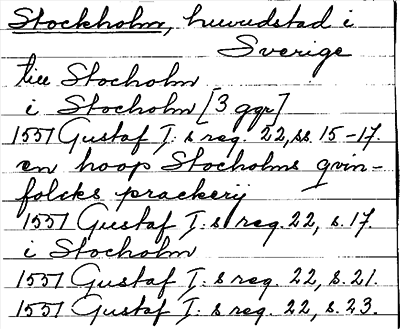 Stockholm, huvudstad i
Sverige
till Stocholm
i Stocholm [3 ggr]
1551 Gustaf I: s reg. 22, ss. 15-17.
en hoop Stocholms qvin-
folcks prackerij
1551 Gustaf I: s reg. 22, s. 17.
i Stocholm
1551 Gustaf I: s reg. 22, s. 21.
1551 Gustaf I: s reg. 22, s. 23.